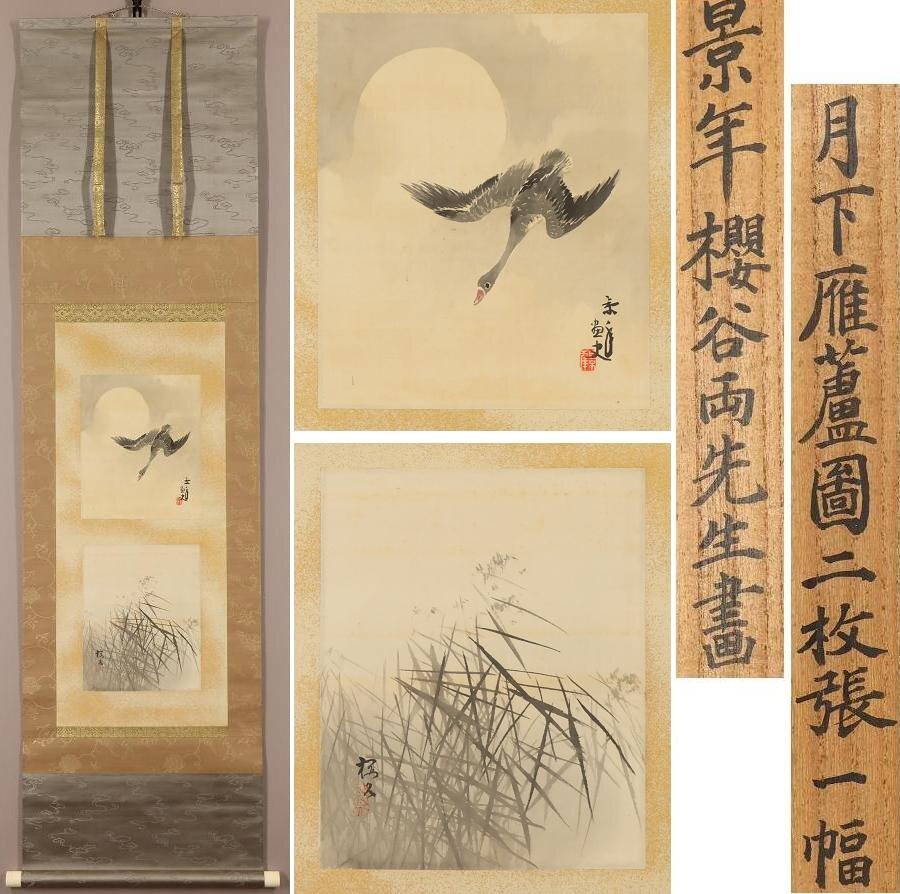 月下雁蘆圖二枚張一幅
景年櫻谷両先生畫
景年画史
櫻谷